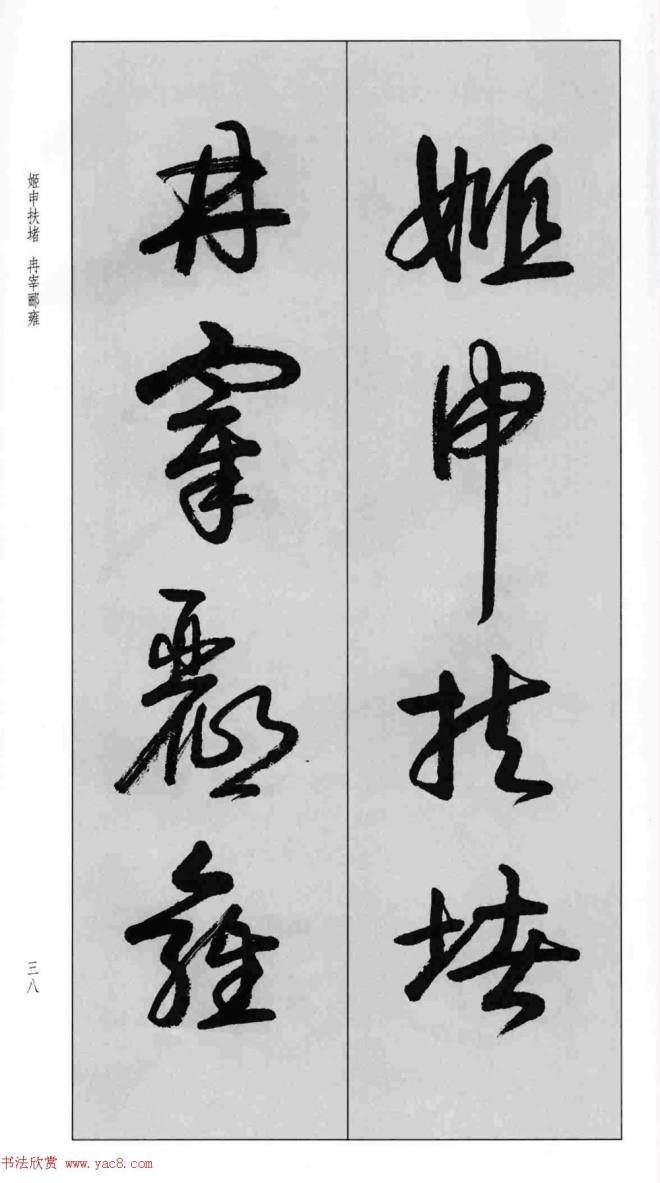 姬申扶堵
冉宰郦雍
姬申扶堵 冉宰郦雍
三八
书法欣赏 www.yac8.com